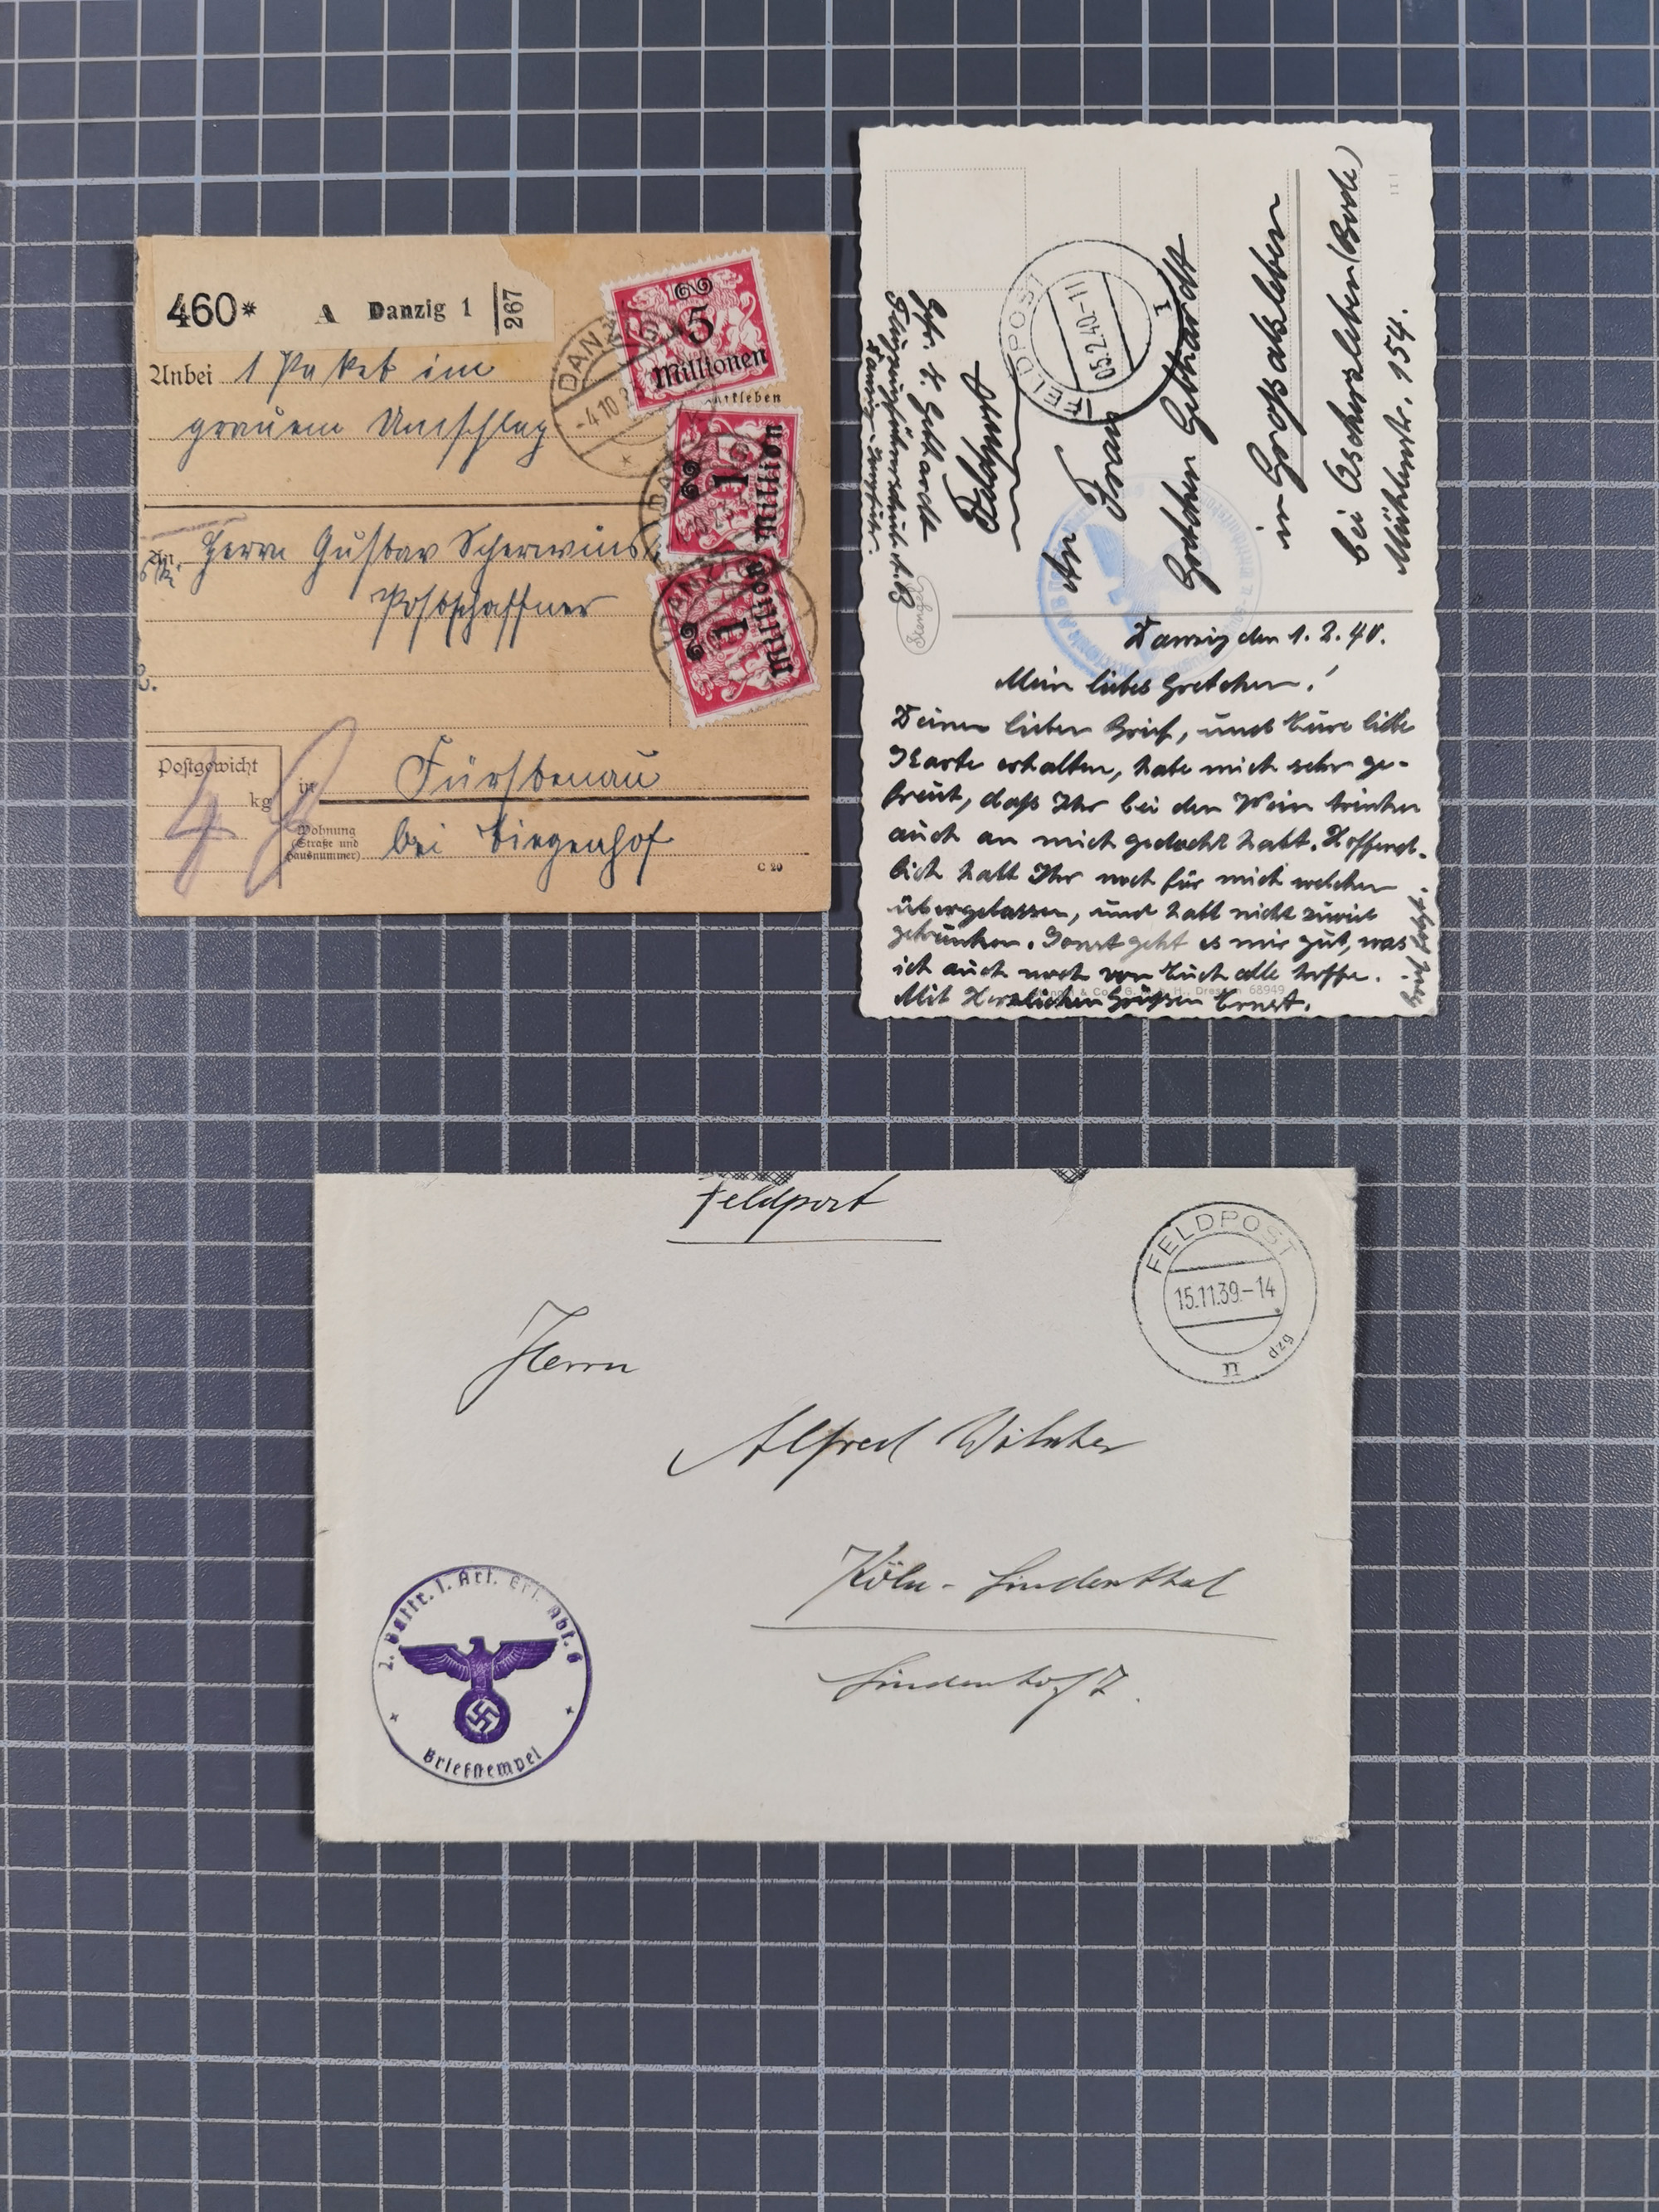 460* A Danzig 1 267
Anbei 1 Paket im
grauem Umschlag
DANZIG
-4.10.
5
Millionen
1
Million
1
Million
An Herrn Gustav Scherwinski
Postschaffner
Postgewicht
kg
4
in Fürstenau
Wohnung
(Straße und
Hausnummer)
bei Tiegenhof
C 20
Gfr. E. Gebhardt
Danzig-Langfuhr.
Feldpost
FELDPOST
05.2.40.-11
An Frau
Gretchen Gebhardt
in Großalsleben
bei Aschersleben (Bode)
Mühlenstr. 154.
Stengel
Danzig den 1.2.40.
Mein liebes Gretchen!
Deinen lieben Brief, und Eure liebe
Karte erhalten, habe mich sehr ge-
freut, daß Ihr bei den Wein trinken
auch an mich gedacht habt. Hoffend-
lich habt Ihr noch für mich welchen
übergelassen, und habt nicht zuviel
getrunken. Sonst geht es mir gut, was
ich auch noch von Euch alle hoffe.
Mit Herzlichen Grüßen Ernst.
Brief folgt.
Dresden 68949
Feldpost
FELDPOST
15.11.39.-14
n
Herrn
Alfred
Köln-Lindenthal
Lindenhof 7.
2. Battr. l. Art. Ers. Abt. 6
Briefstempel